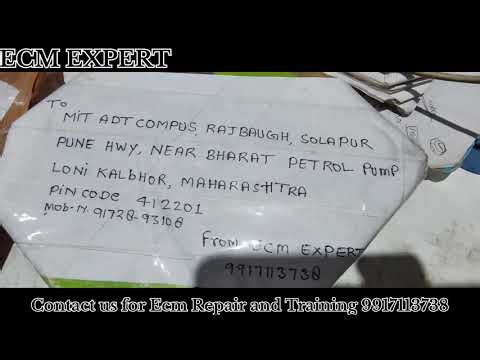 ECM EXPERT
To
MIT ADT COMPUS, RAJBAUGH, SOLAPUR
PUNE HWY, NEAR BHARAT PETROL PUMP
LONI KALBHOR, MAHARASHTRA
PIN CODE 412201
MOB.N. 91728-93108
From ECM EXPERT
9917113738
Contact us for Ecm Repair and Training 9917113738